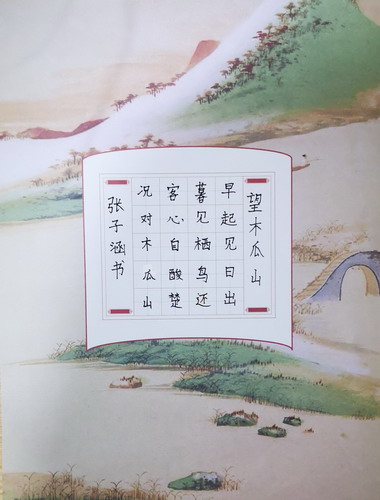 望木瓜山
早起见日出
暮见栖鸟还
客心自酸楚
况对木瓜山
张子涵书